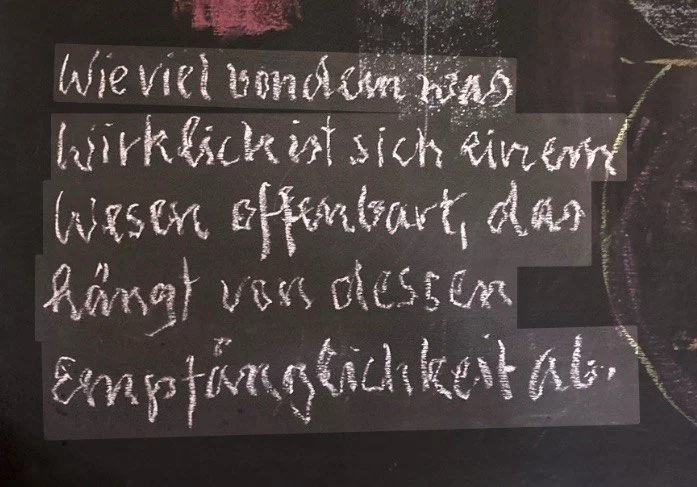 Wieviel von dem was
Wirklich ist sich einem
Wesen offenbart, das
hängt von dessen
Empfänglichkeit ab.